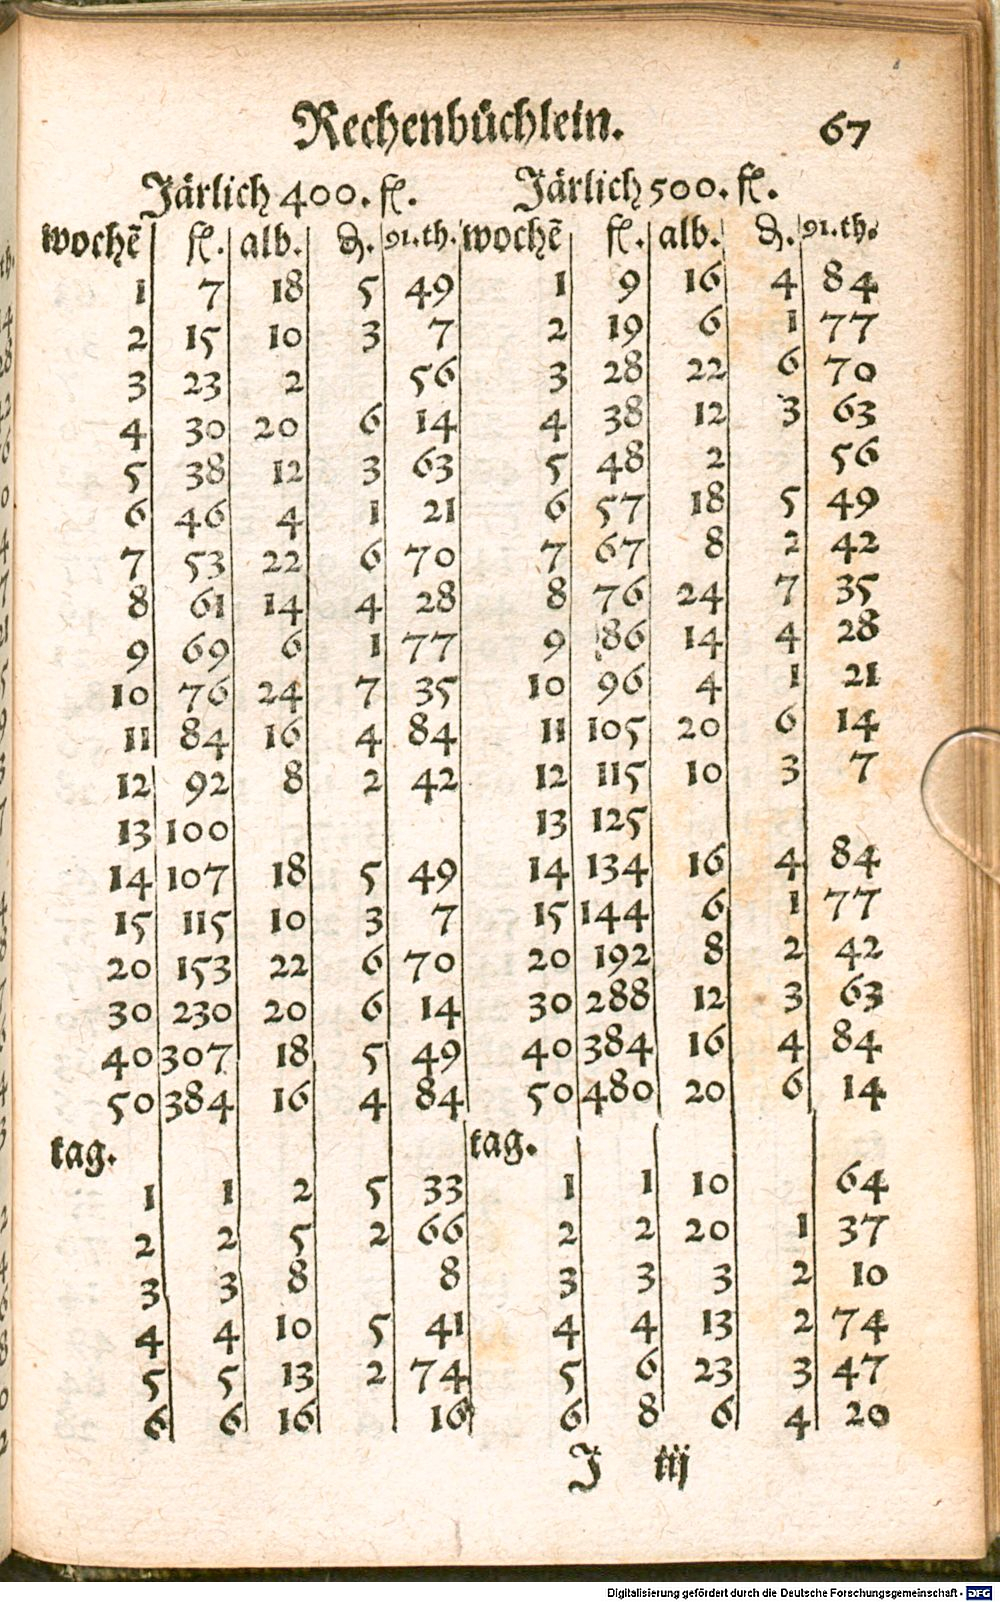 Rechenbüchlein. 67
Järlich 400. fl. Järlich 500. fl.
wochē fl. alb. ₰. 91.th. wochē fl. alb. ₰. 91.th.
1 7 18 5 49 1 9 16 4 84
2 15 10 3 7 2 19 6 1 77
3 23 2 56 3 28 22 6 70
4 30 20 6 14 4 38 12 3 63
5 38 12 3 63 5 48 2 56
6 46 4 1 21 6 57 18 5 49
7 53 22 6 70 7 67 8 2 42
8 61 14 4 28 8 76 24 7 35
9 69 6 1 77 9 86 14 4 28
10 76 24 7 35 10 96 4 1 21
11 84 16 4 84 11 105 20 6 14
12 92 8 2 42 12 115 10 3 7
13 100 13 125
14 107 18 5 49 14 134 16 4 84
15 115 10 3 7 15 144 6 1 77
20 153 22 6 70 20 192 8 2 42
30 230 20 6 14 30 288 12 3 63
40 307 18 5 49 40 384 16 4 84
50 384 16 4 84 50 480 20 6 14
tag. tag.
1 1 2 5 33 1 1 10 64
2 2 5 2 66 2 2 20 1 37
3 3 8 8 3 3 3 2 10
4 4 10 5 41 4 4 13 2 74
5 5 13 2 74 5 6 23 3 47
6 6 16 16 6 8 6 4 20
J iij
Digitalisierung gefördert durch die Deutsche Forschungsgemeinschaft - DFG